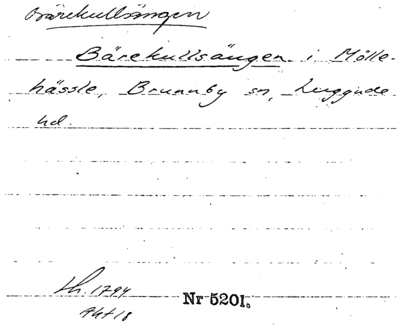 Bärekullsängen
Bärekullsängen i Mölle-
hässle, Brunnby sn, Luggude
hd.
Lh. 1794
Akt 18
Nr 5201.